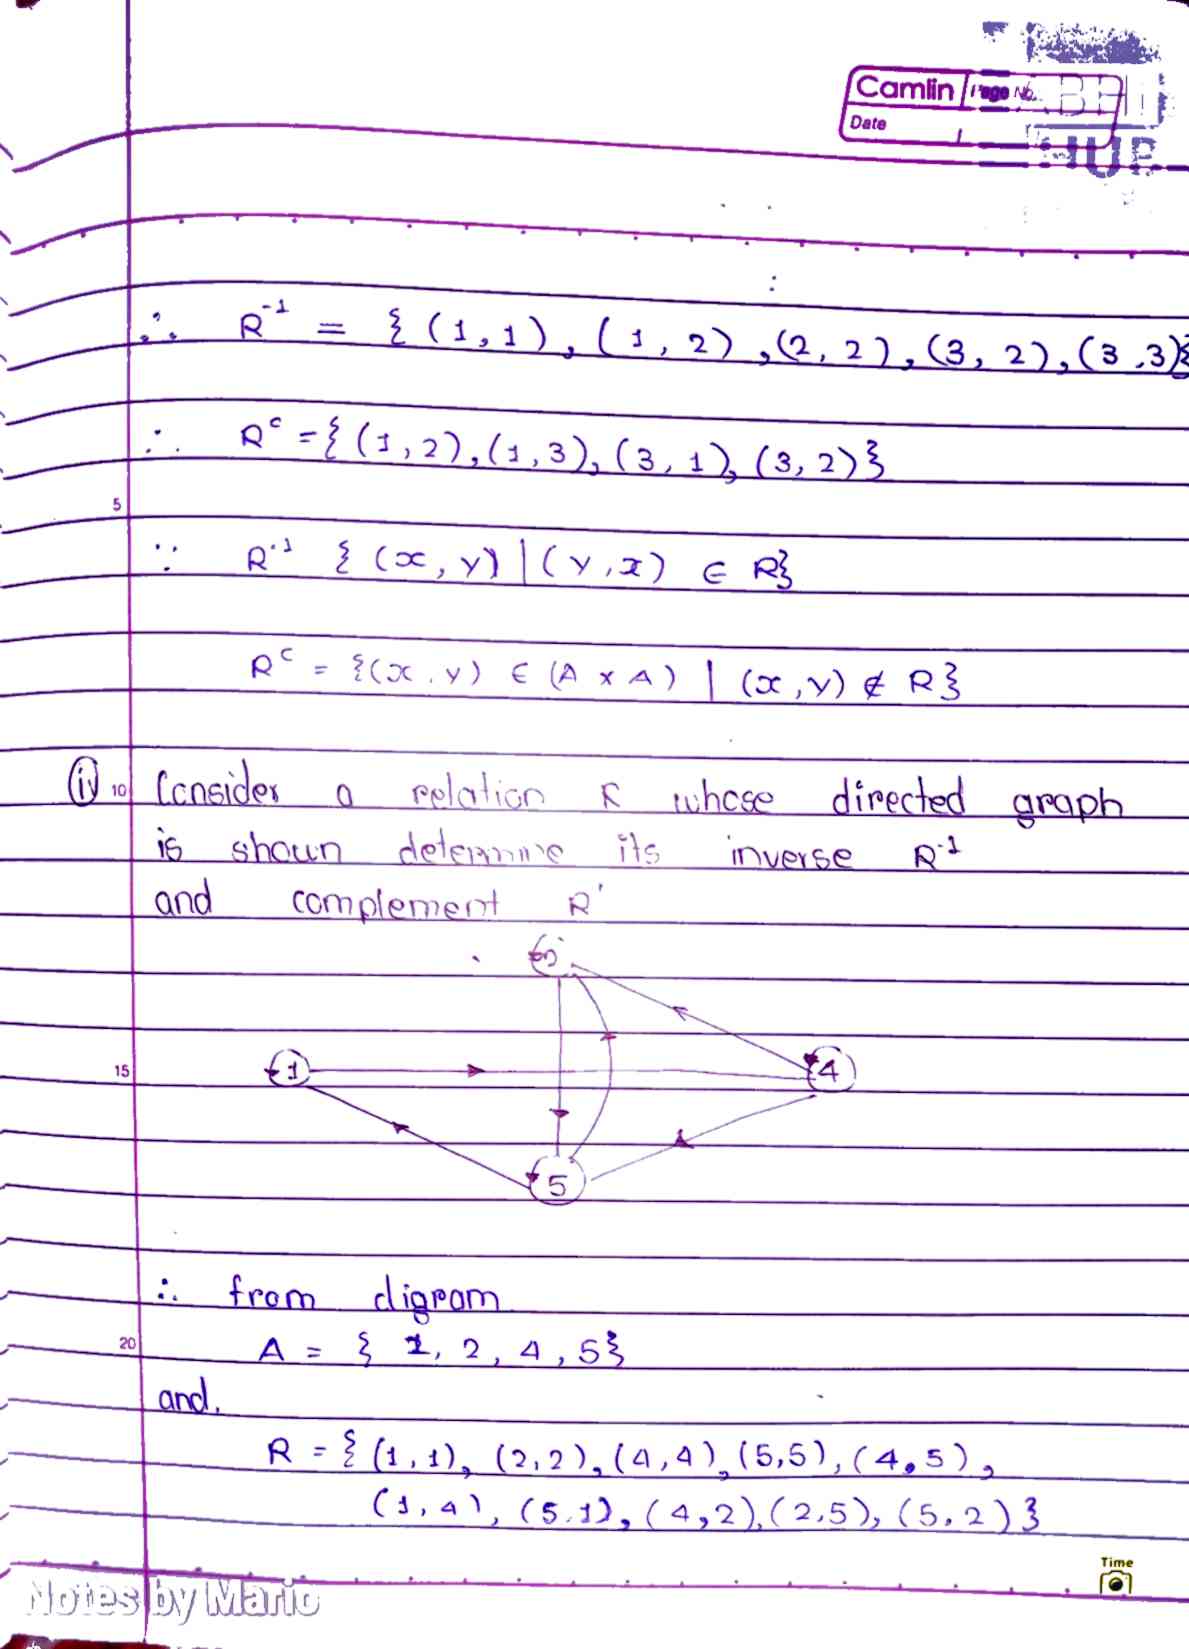 Camlin Page No.
Date
HUB
∴ R⁻¹ = { (1,1), (1,2), (2,2), (3,2), (3,3)}
∴ Rᶜ = { (1,2), (1,3), (3,1), (3,2)}
5
∵ R⁻¹ { (x,y) | (y,x) ∈ R}
Rᶜ = {(x,y) ∈ (A × A) | (x,y) ∉ R}
(iv) 10 Consider a relation R whose directed graph
is shown determine its inverse R⁻¹
and complement R'
2
15 1 4
5
∴ from digram
20 A = { 1, 2, 4, 5}
and,
R = { (1,1), (2,2), (4,4), (5,5), (4,5),
(1,4), (5,1), (4,2), (2,5), (5,2) }
Time
Notes by Mario